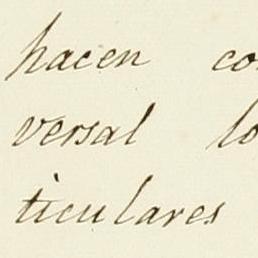 hacen co
versal lo
ticulares